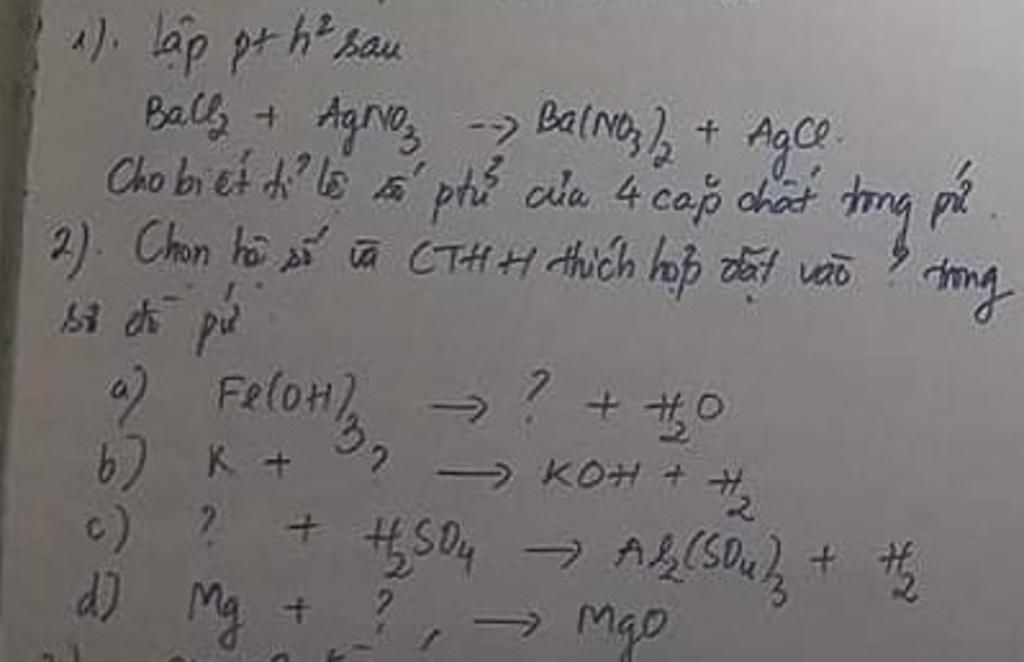 1). Lập pt h² sau
BaCl₂ + AgNO₃ --> Ba(NO₃)₂ + AgCl.
Cho biết tỉ lệ số ptử của 4 cặp chất trong pứ.
2). Chọn hệ số và CTHH thích hợp đặt vào ? trong
sơ đồ pứ
a) Fe(OH)₃ → ? + H₂O
b) K + ? → KOH + H₂
c) ? + H₂SO₄ → Al₂(SO₄)₃ + H₂
d) Mg + ? → MgO